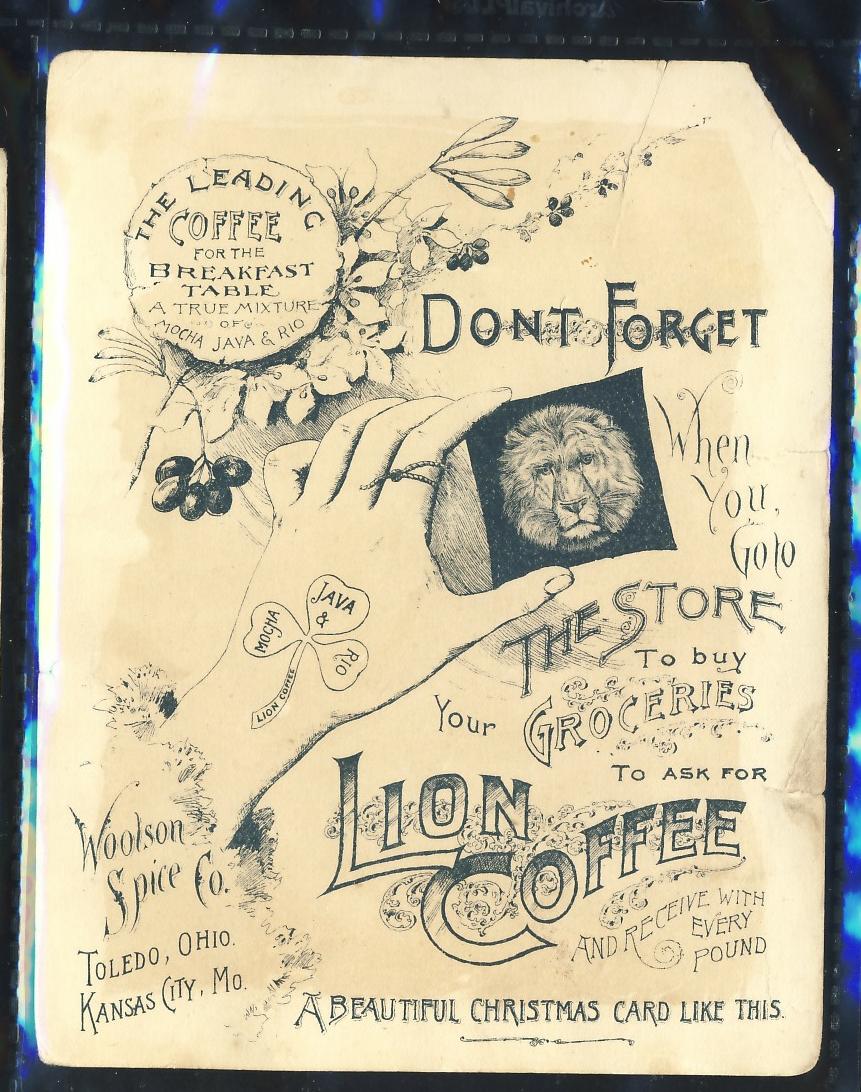 THE LEADING
COFFEE
FOR THE
BREAKFAST
TABLE
A TRUE MIXTURE
OF
MOCHA JAVA & RIO
DONT FORGET
When
You,
Go to
THE STORE
To buy
Your GROCERIES
TO ASK FOR
LION
COFFEE
AND RECEIVE WITH
EVERY
POUND
A BEAUTIFUL CHRISTMAS CARD LIKE THIS.
JAVA
&
MOCHA
RIO
LION COFFEE
Woolson
Spice Co.
TOLEDO, OHIO.
KANSAS CITY, MO.